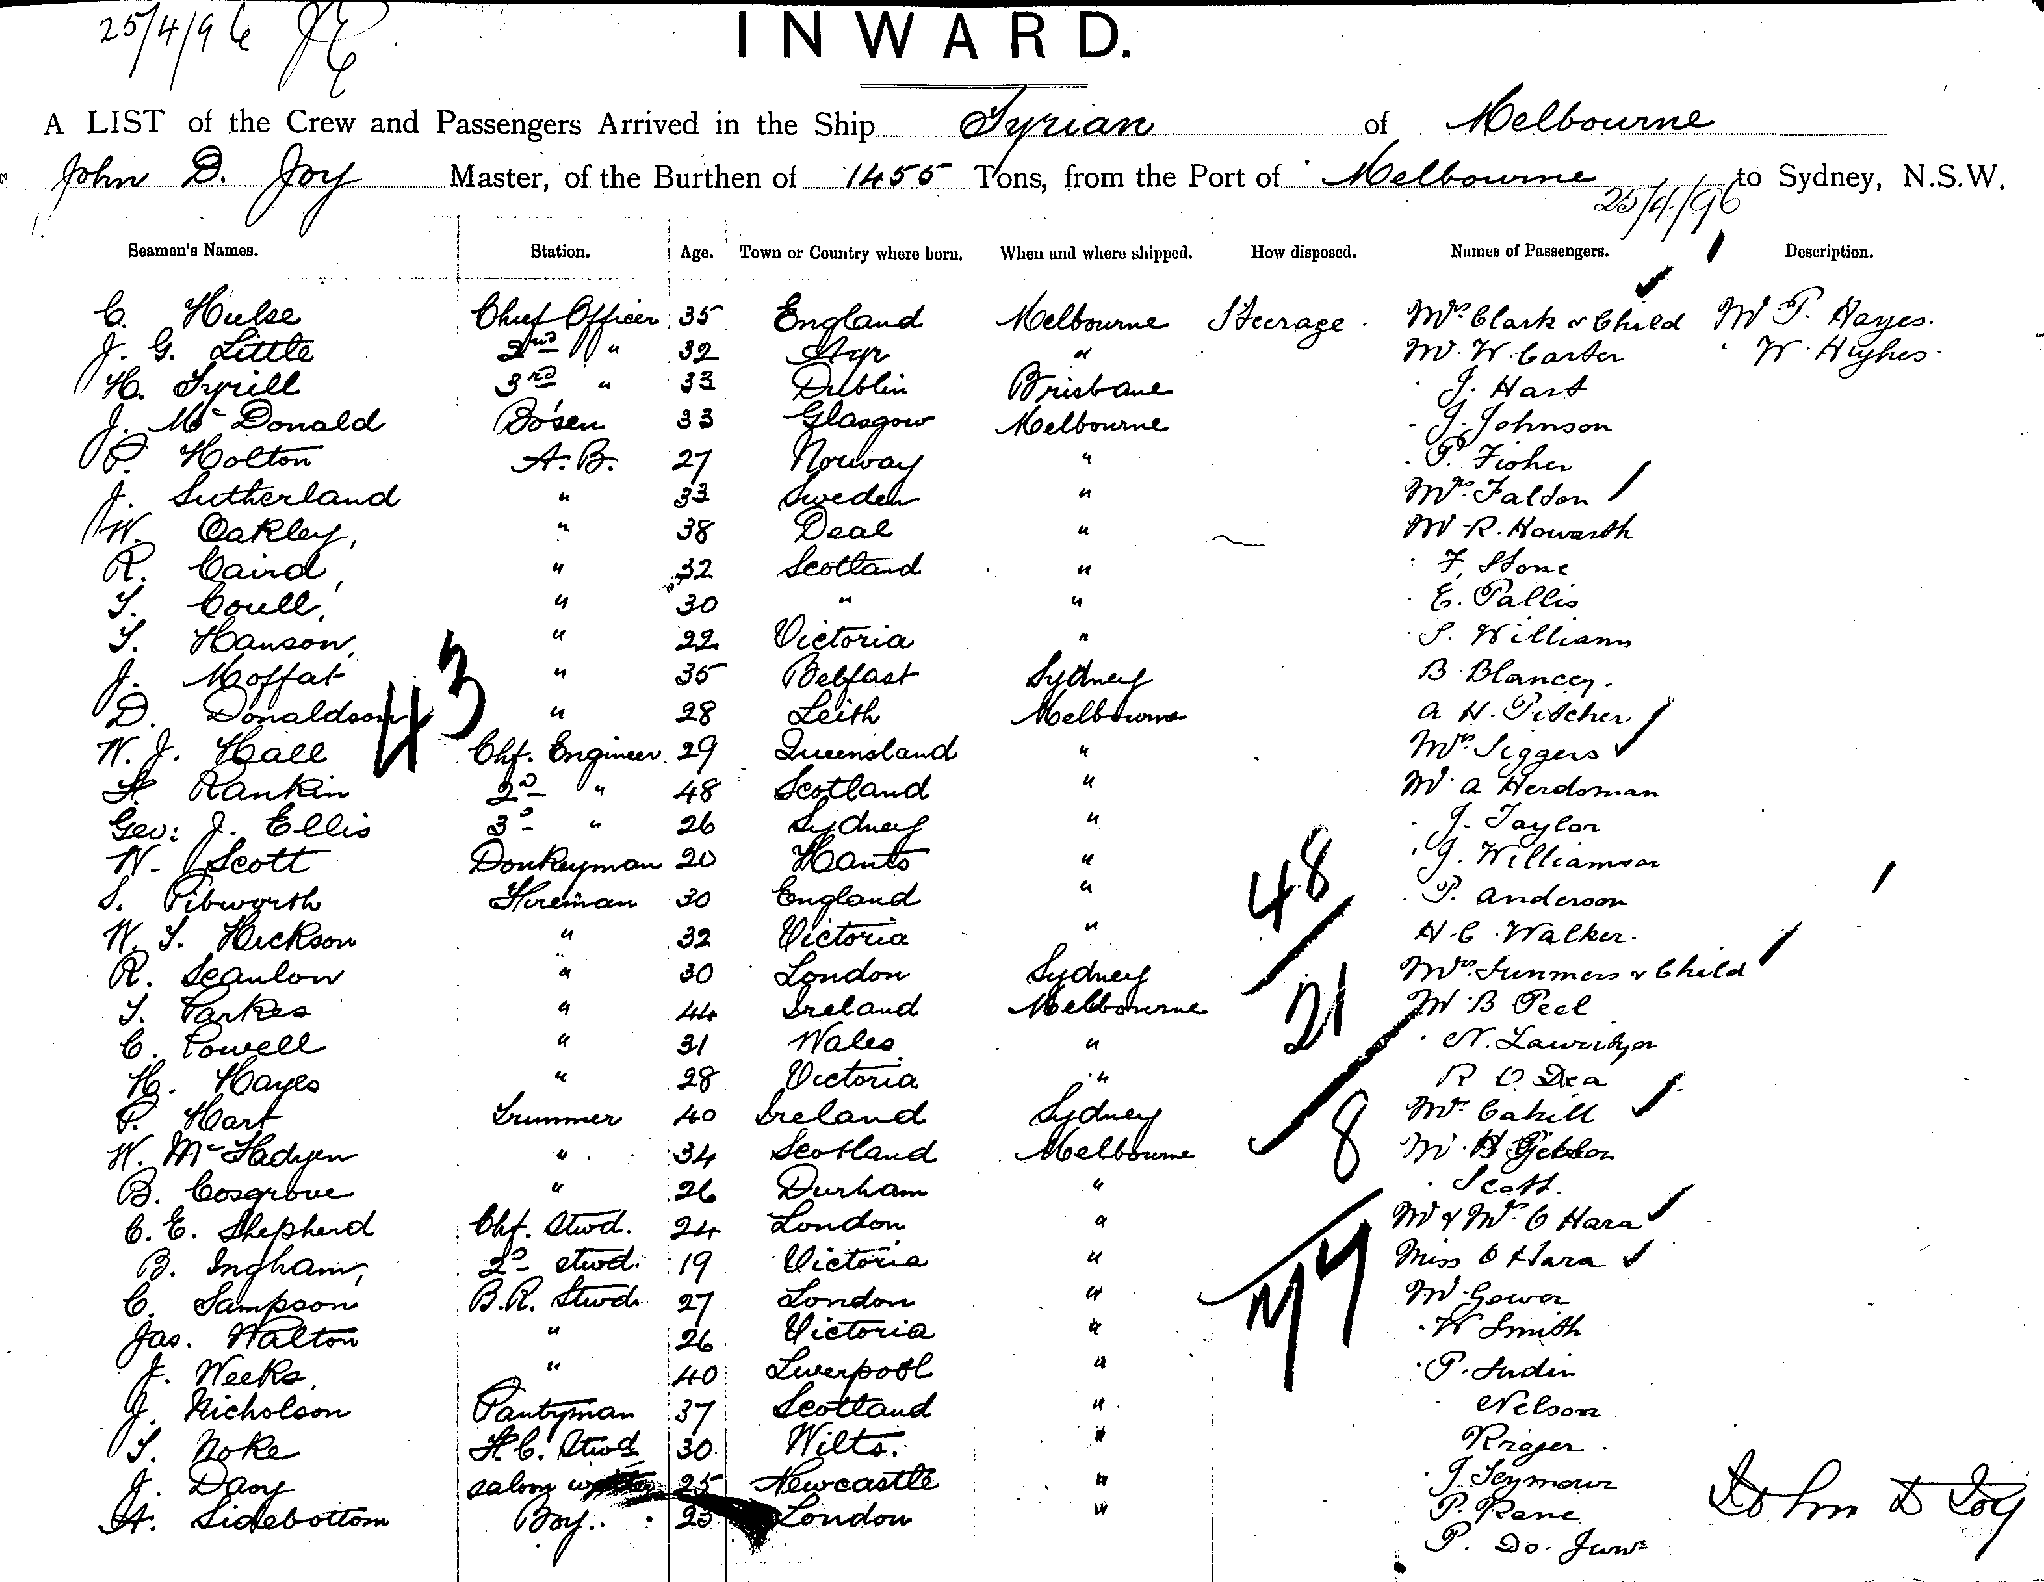 25/4/96
INWARD.
A LIST of the Crew and Passengers Arrived in the Ship Tyrian of Melbourne
John D. Joy Master, of the Burthen of 1455 Tons, from the Port of Melbourne to Sydney, N.S.W.
25/4/96
Seamen's Names. Station. Age. Town or Country where born. When and where shipped. How disposed. Names of Passengers. Description.
C. Hulse Chief Officer 35 England Melbourne Steerage Mrs Clark & Child Mr P. Hayes.
J. G. Little 2nd " 32 Ayr " Mr W. Carter W. Hughes
H. Tyrill 3rd " 33 Dublin Brisbane J. Hart
J. McDonald Bo'sen 33 Glasgow Melbourne J. Johnson
P. Holton A.B. 27 Norway " P. Fisher
J. Sutherland " 33 Sweden " Mrs Faldon
W. Oakley, " 38 Deal " Mr R. Howarth
R. Caird, " 32 Scotland " F. Stone
T. Coull, " 30 " " E. Pallis
T. Hanson, " 22 Victoria " S. Williams
J. Moffat " 35 Belfast Sydney B. Blancey.
D. Donaldson " 28 Leith Melbourne A H. Pitcher
43
W. J. Hall Chf. Engineer 29 Queensland " Mrs Siggers
H. Rankin 2d " 48 Scotland " Mr A Herdsman
Geo: J. Ellis 3d " 26 Sydney " J. Taylor
W. Scott Donkeyman 20 Hants " J. Williamson
S. Pibworth Fireman 30 England " P. Anderson
48
W. T. Hickson " 32 Victoria " H. C. Walker.
R. Scanlow " 30 London Sydney Mrs Summers & Child
T. Parkes " 44 Ireland Melbourne Mr B Peel
21
C. Powell " 31 Wales " N.
H. Hayes " 28 Victoria " R O. Dea
P. Hart Trimmer 40 Ireland Sydney Mrs Cahill
W. McFadyen " 34 Scotland Melbourne Mr H Gibson
8
B. Cosgrove " 26 Durham " Scott.
C. E. Shepherd Chf. Stwd. 24 London " Mr & Mrs O Hara
B. Ingham, 2d Stwd. 19 Victoria " Miss O Hara
C. Sampson B.R. Stwd. 27 London " Mr Gower
77
Jas. Walton " 26 Victoria " W Smith
J. Weeks. " 40 Liverpool " P.
J. Nicholson Pantryman 37 Scotland " Nelson
T. Noke F.C. Stwd 30 Wilts. " Kriger
J. Davy saloon 25 Newcastle " J. Seymour
H. Sidebottom Boy. 23 London " P. Kane
P. Do. Junr
John D Joy